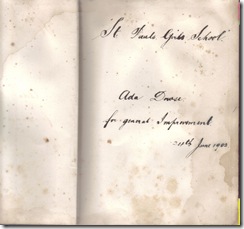 St Pauls Girls School.
Ada
for general Improvement
11th June 1902